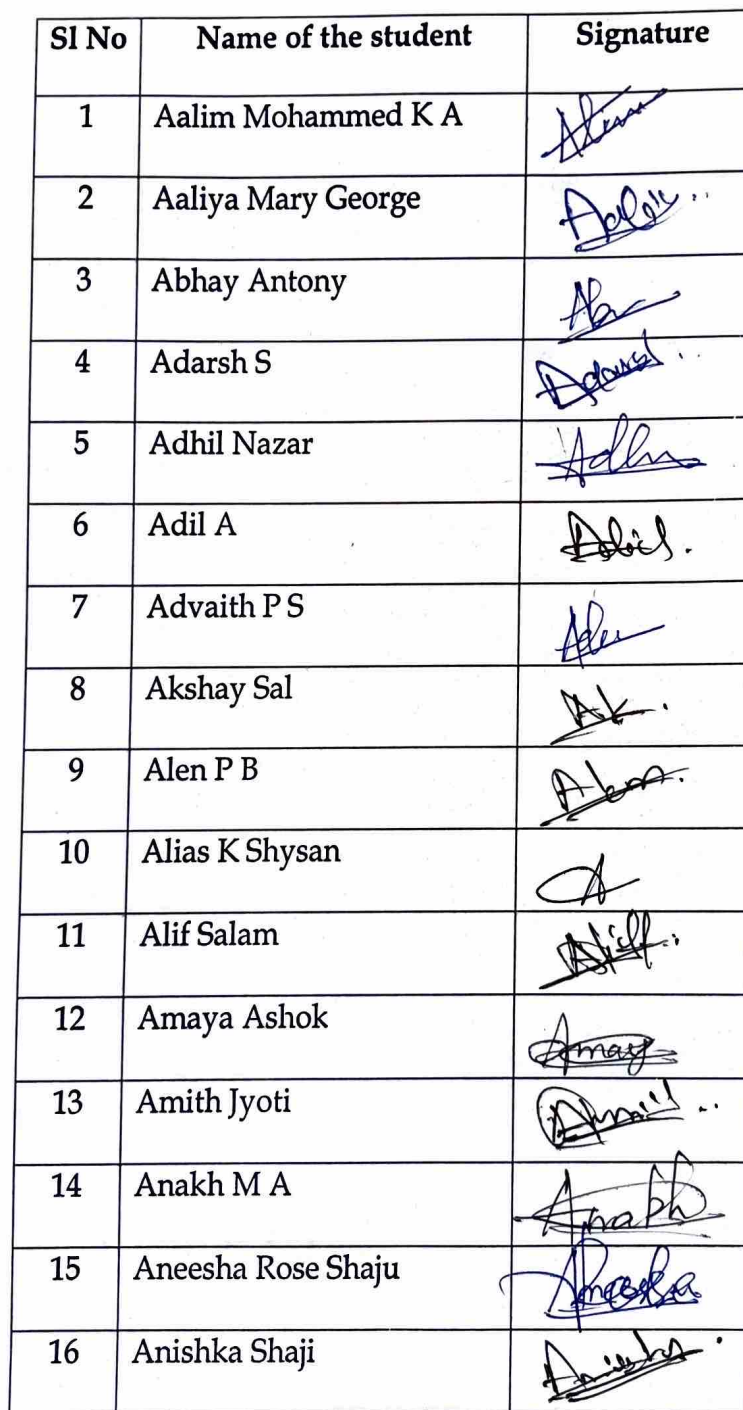 Sl No Name of the student Signature
1 Aalim Mohammed K A
2 Aaliya Mary George
3 Abhay Antony
4 Adarsh S
5 Adhil Nazar
6 Adil A
7 Advaith P S
8 Akshay Sal Ak.
9 Alen P B Alen.
10 Alias K Shysan A
11 Alif Salam
12 Amaya Ashok Amay
13 Amith Jyoti
14 Anakh M A Anakh
15 Aneesha Rose Shaju Aneesha
16 Anishka Shaji